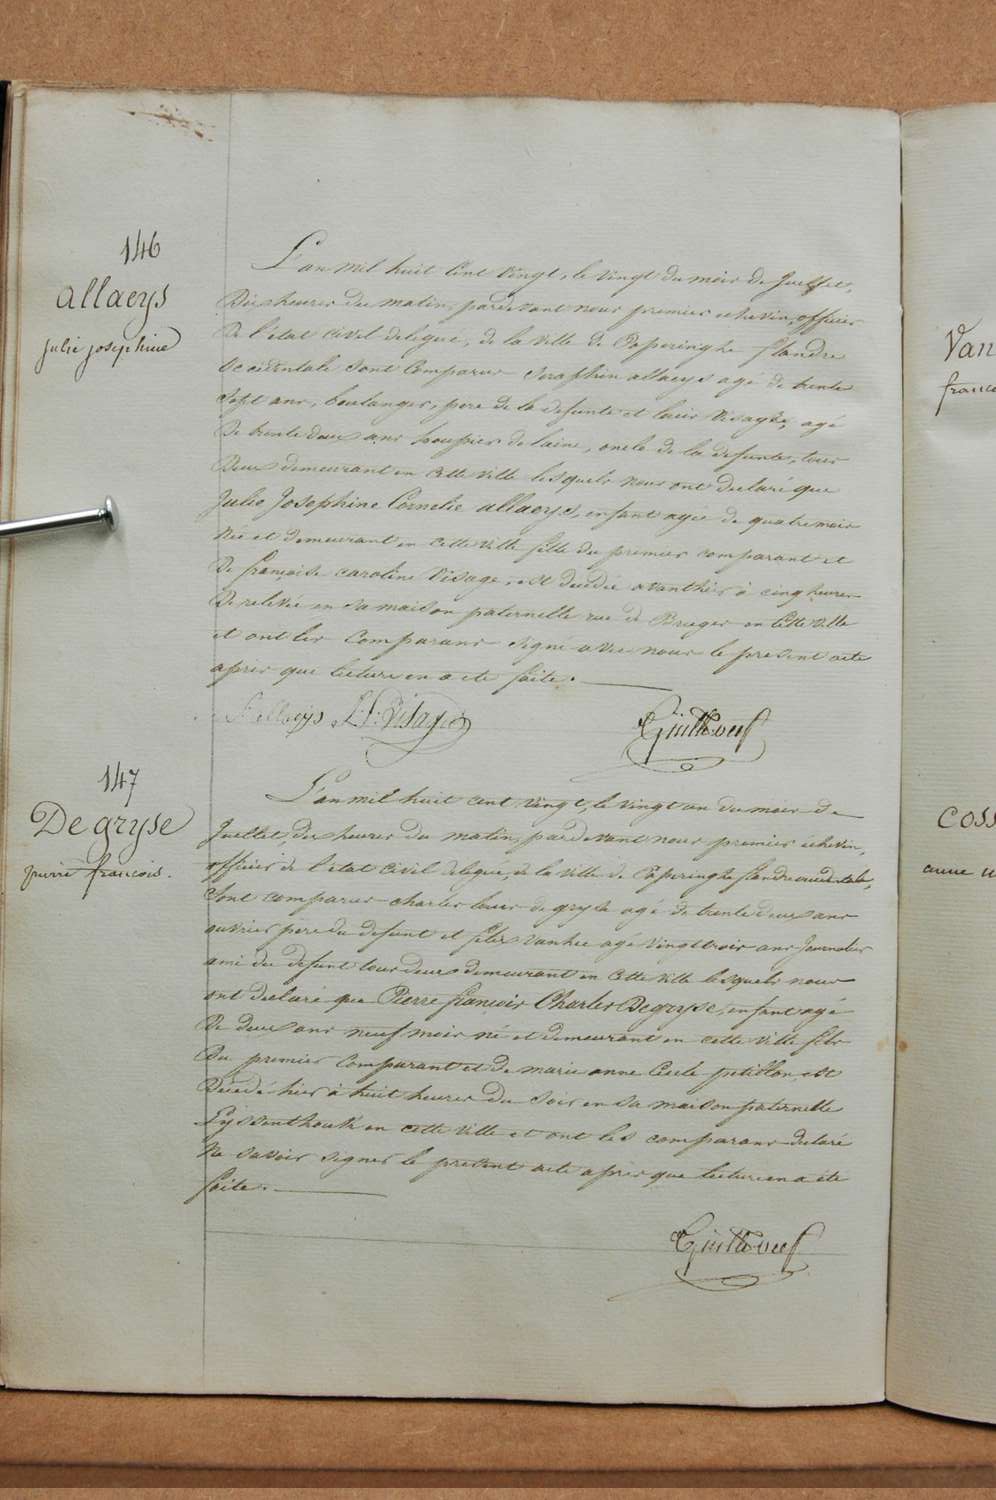 146
allaeys
julie josephine
L'an mil huit Cent Vingt, le vingt du mois de Juillet,
Dix heures du matin, pardevant nous premier echevin, officier
De l'etat Civil delegué, de la Ville de Poperinghe flandre
Occidentale sont Comparus Seraphin allaeys agé de trente
Sept ans, boulanger, pere de la defunte et louis Visage, agé
De trente deux ans houpier de laine, oncle de la defunte, tous
Deux demeurant en Cette Ville lesquels nous ont declaré que
Julie Josephine Cornelie allaeys, enfant agée de quatre mois
Née et demeurant en cette Ville fille du premier comparant et
De françoise caroline Visage, est decédée avanthier à cinq heures
De relevée en sa maison paternelle rue de Bruges en Cette Ville
et ont les Comparans signé avec nous le present acte
apres que lecture en a eté faite.
S allaeys L: Visage
147
Degryse
pierre francois.
L'an mil huit cent Vingt, le vingt un du mois de
Juillet, dix heures du matin, pardevant nous premier echevin,
officier de l'etat Civil delegué, de la Ville de Poperinghe flandre occidentale,
Sont comparus charles louis degryse agé de trente deux ans
ouvrier pere du defunt et felix vanhee agé Vingt trois ans Journalier
ami du defunt tous deux demeurant en Cette Ville lesquels nous
ont declaré que Pierre françois Charles Degryse, enfant agé
De deux ans neuf mois né et demeurant en cette Ville fils
Du premier Comparant et de marie anne Cecile petillon, est
Decedé hier à huit heures du Soir en sa maison paternelle
en cette Ville et ont les comparans declaré
Ne savoir signer le present acte apres que lecture en a eté
faite.
Van
COSS